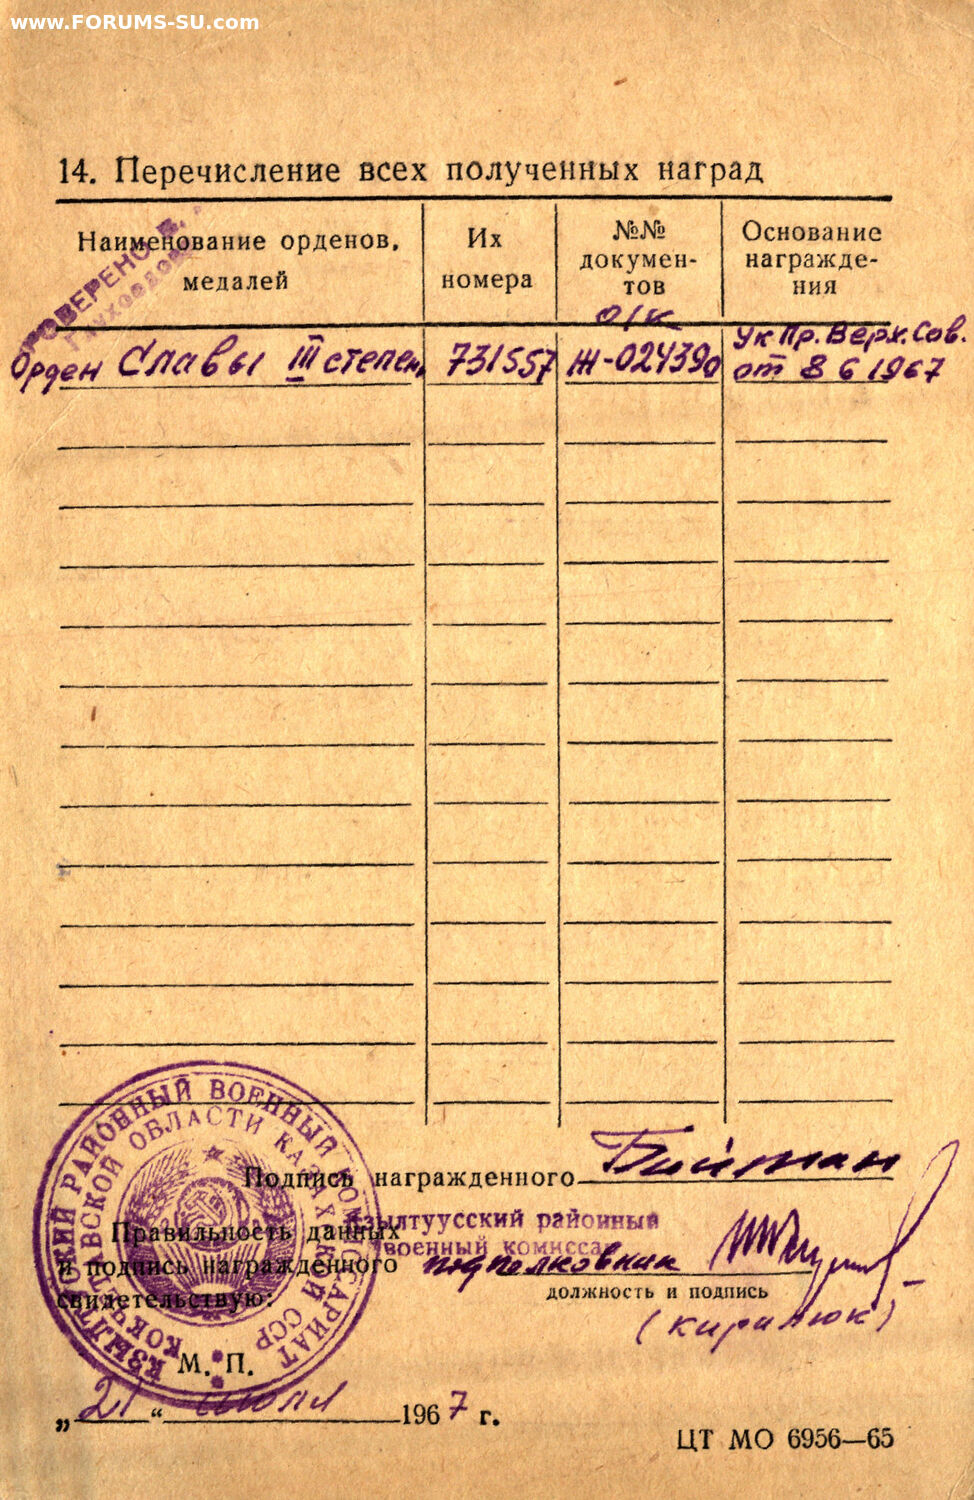 www.FORUMS-SU.com
14. Перечисление всех полученных наград
Наименование орденов, медалей
Их номера
№№ документов
Основание награждения
о/к
Орден Славы III степени
731557
Ж-024390
Ук Пр. Верх. Сов.
от 8 6 1967
Подпись награжденного
Правильность данных
и подпись награжденного
свидетельствую:
Кзылтуусский районный
военный комиссар
подполковник
должность и подпись
(Кирилюк)
М. П.
„21“ июля 1967 г.
ЦТ МО 6956—65
РАЙОННЫЙ ВОЕННЫЙ КОМИССАРИАТ
КОКЧЕТАВСКОЙ ОБЛАСТИ КАЗАХСКОЙ ССР